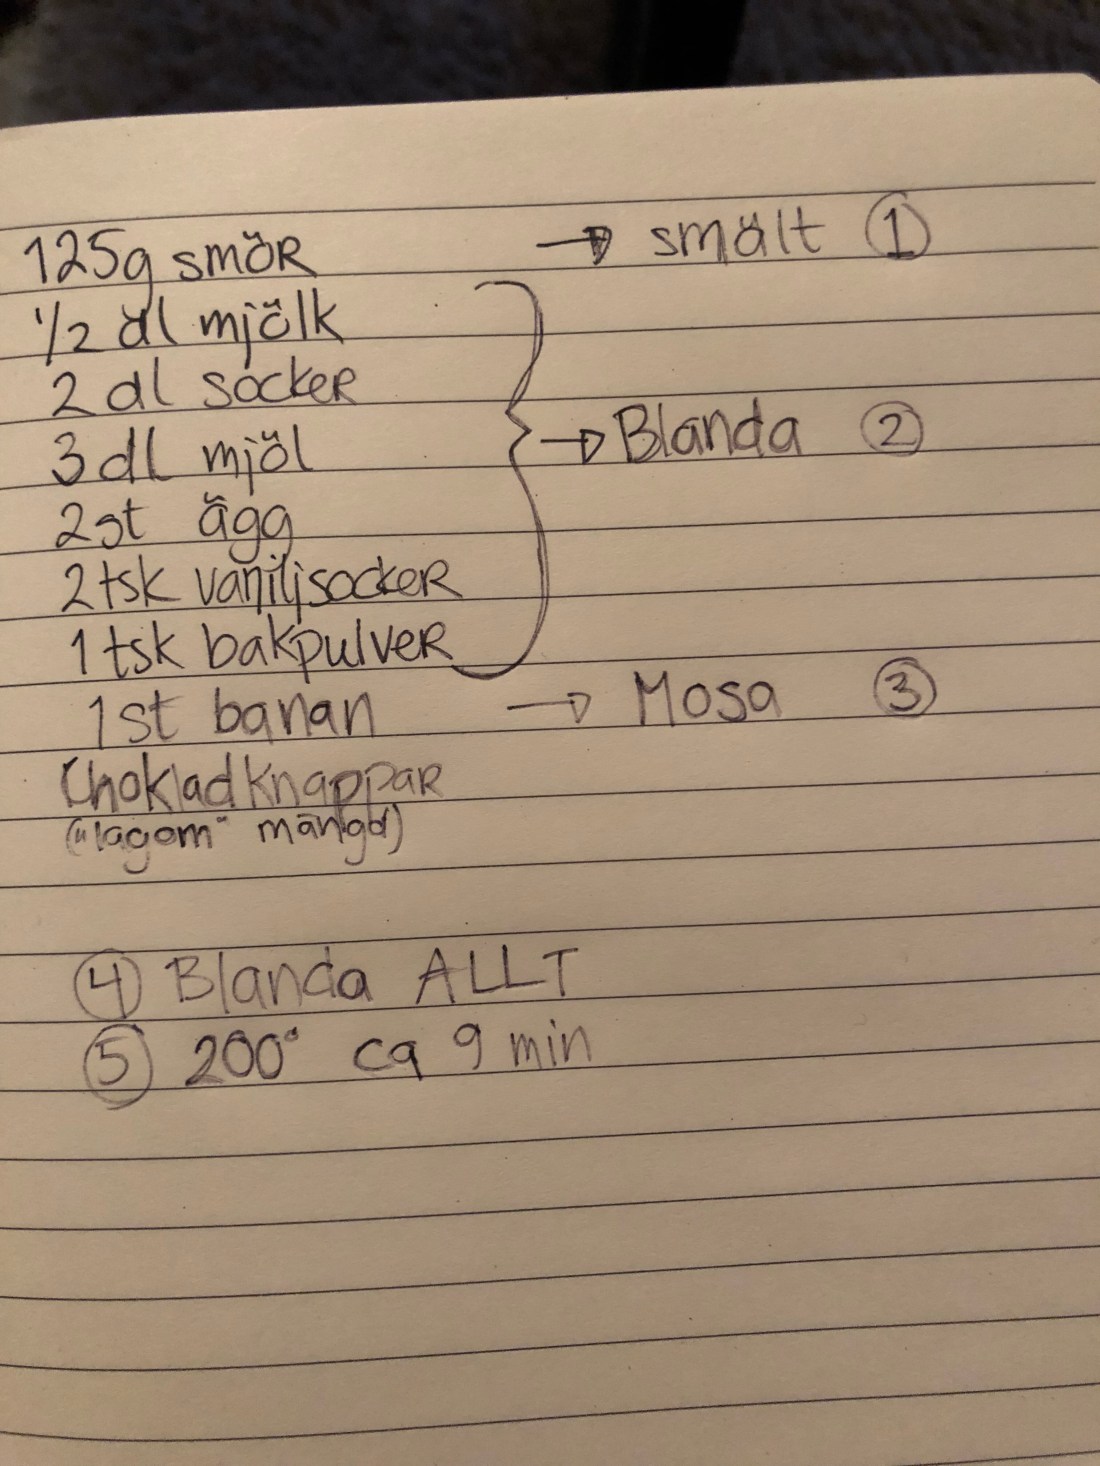 125g smör → smält ①
1/2 dl mjölk
2 dl socker
3 dl mjöl → Blanda ②
2st ägg
2 tsk vaniljsocker
1 tsk bakpulver
1st banan → Mosa ③
Chokladknappar
("lagom" mängd)
④ Blanda ALLT
⑤ 200° ca 9 min